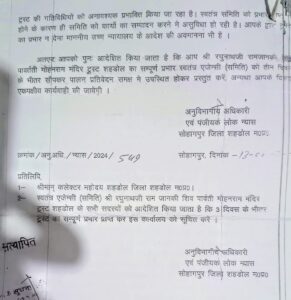 ट्रस्ट की गतिविधियों को अनावश्यक प्रभावित किया जा रहा है। स्वतंत्र समिति को प्रभार
होने के कारण ही समिति को कार्यो का सम्पादन करने में असुविधा हो रही है। आपके द्वारा
का प्रभार न देना माननीय उच्च न्यायालय के आदेश की अवमानना भी है ।
अतएव आपको पुनः आदेशित किया जाता है कि आप श्री रघुनाथजी रामजानकी
पार्वती मोहनराम मंदिर ट्रस्ट शहडोल का सम्पूर्ण प्रभार स्वतंत्र एजेन्सी (समिति) को तीन
भीतर सौंपकर पालन प्रतिवेदन समक्ष में उपस्थित होकर प्रस्तुत करें, अन्यथा आपके
एकपक्षीय कार्यवाही की जावेगी ।
अनुविभागीय अधिकारी
एवं पंजीयक लोक न्यास
सोहागपुर जिला शहडोल म०प्र०
क्रमांक /अनु०वि० /न्यास /2024/ 549
सोहागपुर, दिनांक
प्रतिलिपि
1- श्रीमान् कलेक्टर महोदय शहडोल जिला शहडोल म०प्र० ।
2- स्वतंत्र एजेन्सी (समिति) श्री रघुनाथजी राम जानकी शिव पार्वती मोहनराम मंदिर
ट्रस्ट शहडोल के सभी सदस्यों को आदेशित किया जाता है कि 3 दिवस के भीतर
ट्रस्ट का सम्पूर्ण प्रभार प्राप्त कर इस कार्यालय को सूचित करें ।
सत्यापित
अनुविभागीय अधिकारी
एवं पंजीयक लोक न्यास
सोहागपुर जिला शहडोल म०प्र०